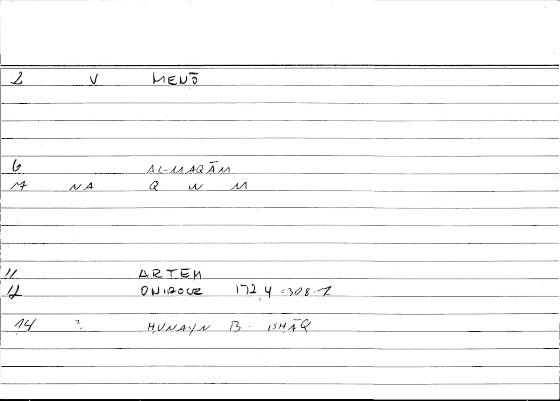 2 V MENŌ
6 AL-MAQĀM
M NA Q W M
11 ARTEM
12 ONIROCR 172,4 = 308.1
14 ? ḤUNAYN B. ISḤĀQ